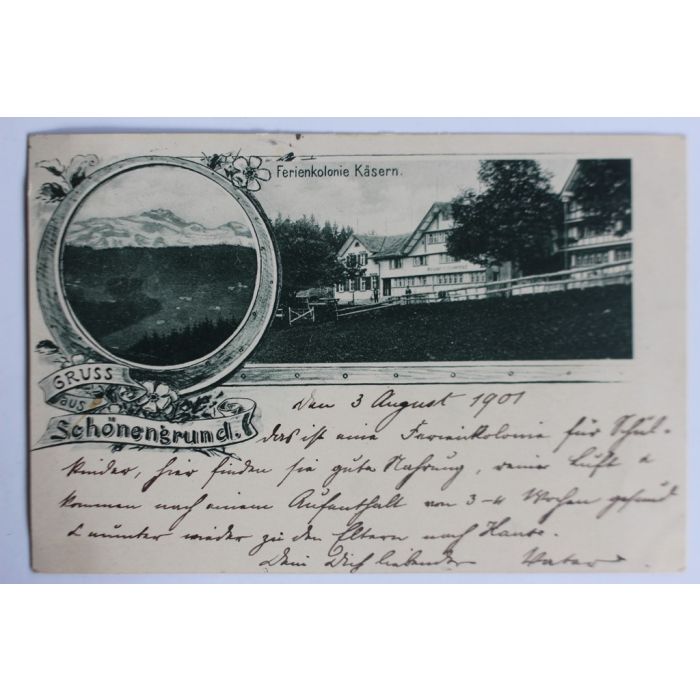 Ferienkolonie Käsern.
GRUSS
aus
Schönengrund.
Den 3 August 1901
das ist eine Ferienkolonie für Schul-
kinder, hier finden sie gute Nahrung, reine Luft &
kommen nach einem Aufenthalt von 3-4 Wochen gesund
& munter wieder zu den Eltern nach Hause.
Dein Dich liebender Vater